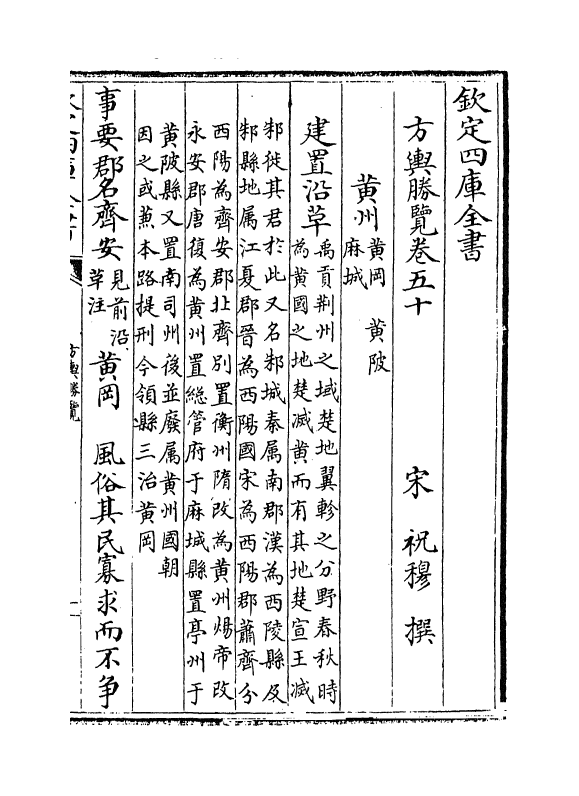 欽定四庫全書
方輿勝覽卷五十
宋 祝穆 撰
黃州 黃岡 黃陂
麻城
建置沿革 禹貢荆州之域楚地翼軫之分野春秋時
為黃國之地楚滅黃而有其地楚宣王滅
邾徙其君於此又名邾城秦属南郡漢為西陵縣及
邾縣地属江夏郡晉為西陽國宋為西陽郡蕭齊分
西陽為齊安郡北齊別置衡州隋改為黃州煬帝改
永安郡唐復為黃州置總管府于麻城縣置亭州于
黃陂縣又置南司州後並廢属黃州國朝
因之或蕪本路提刑今領縣三治黃岡
事要郡名齊安 見前沿
革注 黃岡 風俗其民寡求而不争
方輿勝覽
一